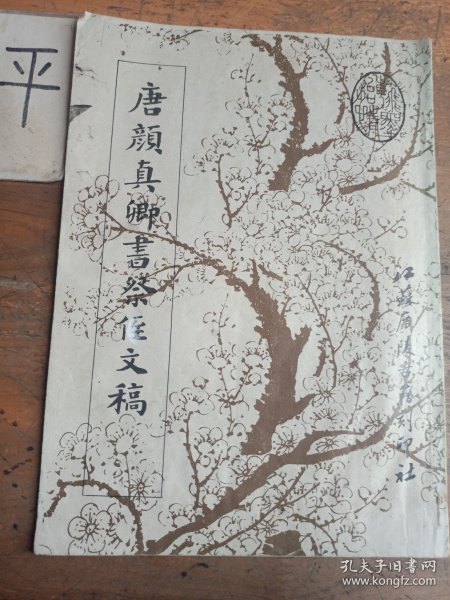 平
唐颜真卿書祭侄文稿
江蘇廣陵古籍刻印社
孔夫子旧书网
www.kongfz.com